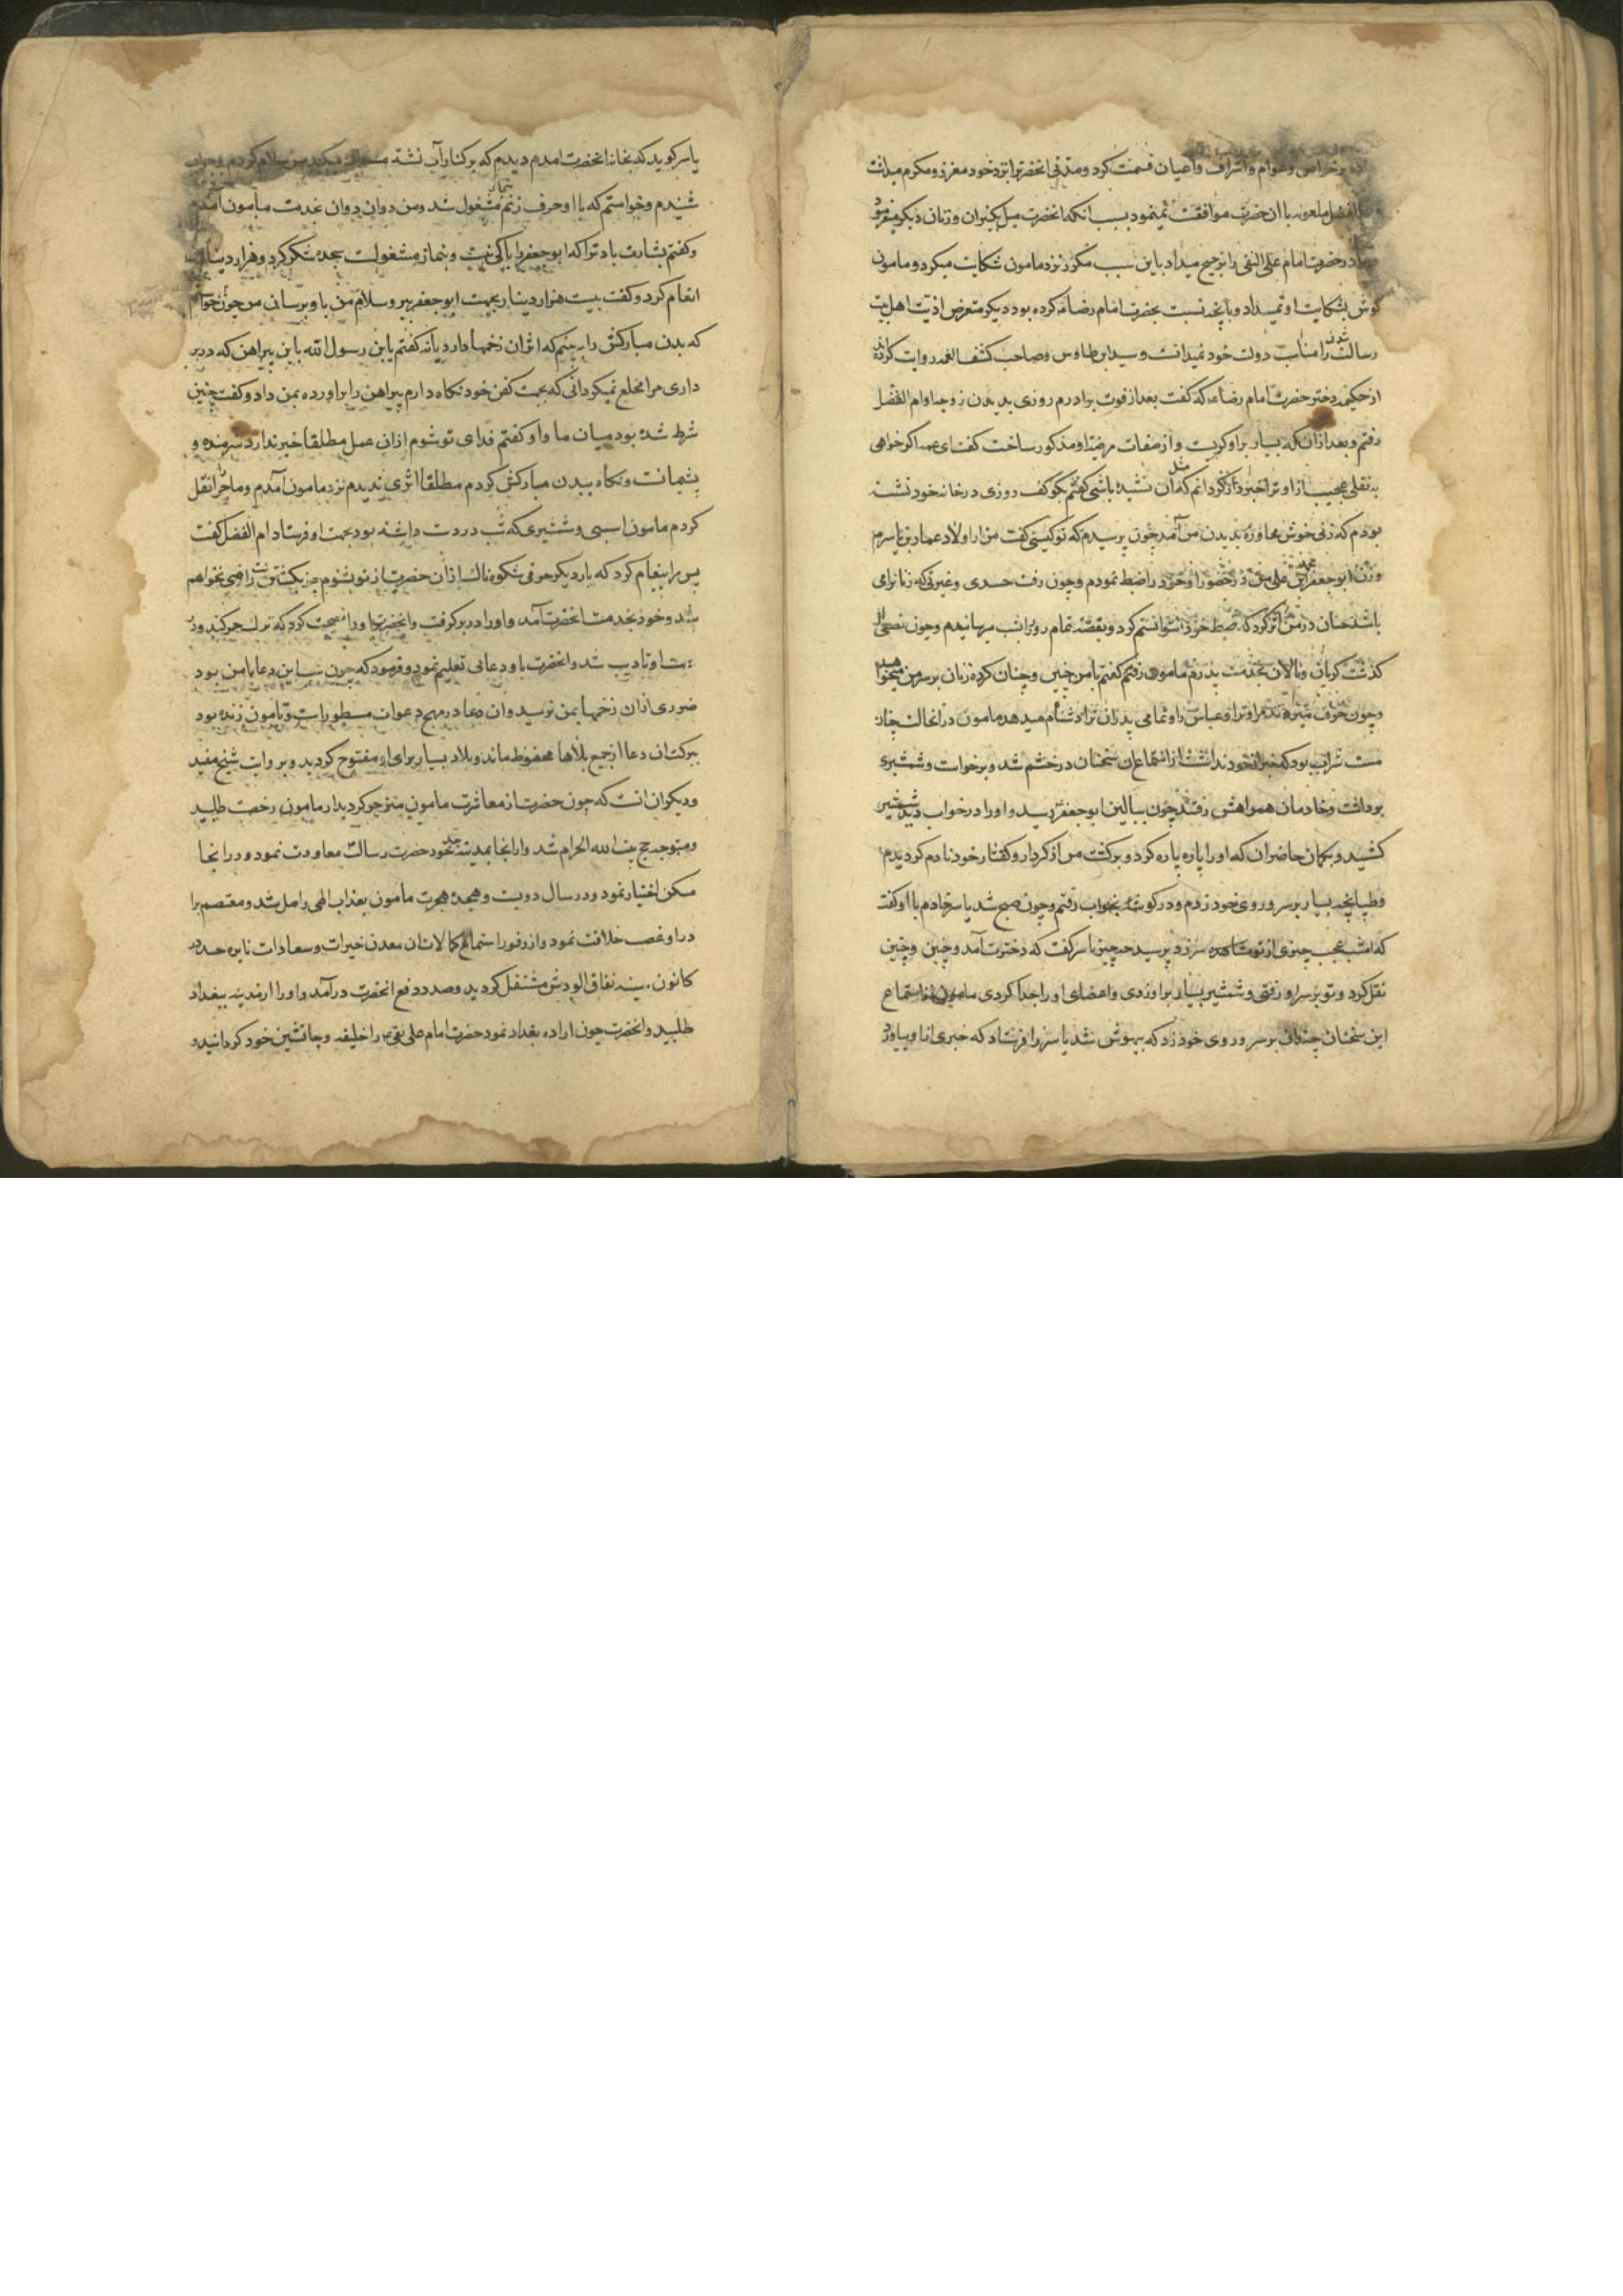 بر خواص و عوام و اشراف و اعیان قسمت کرد و مدتی انحضرترا نزد خود معزز و مکرم میداشت
ملعونه با ان حضرت موافقت نمینمود بسبب انکه انحضرت میل بکنیزان و زنان دیکر میفرمود
در حضرت امام علی النقی را ترجیح میداد باین سبب مکرر نزد مامون شکایت میکرد و مامون
کوش بشکایت او نمیداد و بانچه نسبت بحضرت امام رضا کرده بود دیکر متعرض اذیت اهل بیت
رسالت شدن را مناسب دولت خود نمیدانست و سید ابن طاوس و صاحب کشف الغمه روایت کرده
از حکیمه دختر حضرت امام رضا که کفت بعد از فوت برادرم روزی بدیدن زوجه او ام الفضل
رفتم و بعد ازان که بسیار براو کریست و از صفات مرضیه او مذکور ساخت کفت ای عمه اکر خواهی
به نقلی عجیب از او ترا خبردار کردانم که مثل آن نشنیده باشی کفتم بکو کفت روزی در خانه خود نشسته
بودم که زنی خوش محاوره بدیدن من آمد چون پرسیدم که تو کیستی کفت من از اولاد عمار بن یاسرم
و زن ابو جعفر محمد بن علی من در حضور او خود را ضبط نمودم و چون رفت حسدی و غیرتی که زنانرا می
باشد چنان در من اثر کرد که ضبط خود نتوانستم کرد و بغصه تمام روز را بشب رسانیدم و چون نصفی از
کذشت کریان و نالان بخدمت پدرم مامون رفتم کفتم با من چنین و چنان کرده زنان بر سر من میخواهد
و چون حرف میزنم مرا و ترا و عباس را و تمامی پدران ترا دشنام میدهد مامون در انحالت چنان
مست شراب بود که خبر از خود نداشت از استماع ان سخنان در خشم شد و برخواست و شمشیری
برداشت و خادمان همراهش رفتند چون ببالین ابو جعفر رسید و او را در خواب دید شمشیر
کشید و بکمان حاضران که او را پاره پاره کرد و برکشت من از کردار و کفتار خود نادم کردیدم
و طپانچه بسیار بر سر و روی خود زدم و در کوشه بخواب رفتم و چون صبح شد یاسر خادم باو کفت
که امشب عجب چیزی از تو مشاهده سرزد پرسید چه چیز یاسر کفت که دخترت آمد و چنین و چنین
نقل کرد و تو بر سر او رفتی و شمشیر بسیار براو زدی و اعضای او را جدا کردی مامون از استماع
این سخنان چندان بر سر و روی خود زد که بیهوش شد یاسر را فرستاد که خبری از او بیاورد
یاسر کوید که بخانه انحضرت امدم دیدم که بر کنار آب نشسته مسواک میکند من سلام کردم و جواب
شنیدم و خواستم که با او حرف زنم بنماز مشغول شد و من دوان دوان بخدمت مامون آمدم
و کفتم بشارت باد ترا که ابو جعفر را باکی نیست و بنماز مشغولست سجده شکر کرد و هزار دینار بمن
انعام کرد و کفت بیست هزار دینار بجهت ابو جعفر ببر و سلام من باو برسان من چون خواستم
که بدن مبارکش را ببینم که اثر ان زخمها دارد یا نه کفتم یابن رسول الله باین پیراهن که در بر
داری مرا مخلع نمیکردانی که بجهت کفن خود نکاه دارم پیراهن را براورده بمن داد و کفت چنین
شرط شده بود میان ما و او کفتم فدای تو شوم ازان عمل مطلقا خبر ندارد شرمنده و
پشیمانست و نکاه ببدن مبارکش کردم مطلقا اثری ندیدم نزد مامون آمدم و ماجرا نقل
کردم مامون اسبی و شمشیری که شب در دست داشته بود بجهت او فرستاد ام الفضل کفت
پس مرا پیغام کرد که بار دیکر حرفی شکوه ناک ازان حضرت از تو بشنوم جز بکشتنت راضی نخواهم
شد و خود بخدمت انحضرت آمد و او را در بر کرفت و انحضرت او را نصیحت کرد که ترک خمر کند و در
دست او تایب شد و انحضرت باو دعائی تعلیم نمود و فرمود که چون این دعا با من بود
ضرری ازان زخمها بمن نرسید وان دعا در مهج دعوات مسطور است و تا مامون زنده بود
ببرکت ان دعا از جمیع بلاها محفوظ ماند و بلاد بسیار برای او مفتوح کردید و بر وایت شیخ مفید
و دیکران انست که چون حضرت از معاشرت مامون منزجر کردید از مامون رخصت طلبید
و متوجه حج بیت الله الحرام شد و ازانجا بمدینه جد خود حضرت رسالت معاودت نمود و درانجا
مسکن اختیار نمود و در سال دویست و هیجده هجرت مامون بعذاب الهی واصل شد و معتصم برا
در او غصب خلافت نمود و از وفور استماع کمالات ان معدن خیرات و سعادات نایره حسد در
کانون سینه نفاق الودش مشتعل کردید و صدد دفع انحضرت درآمد و او را از مدینه ببغداد
طلبید و انحضرت چون اراده بغداد نمود حضرت امام علی نقی را خلیفه و جانشین خود کردانید و